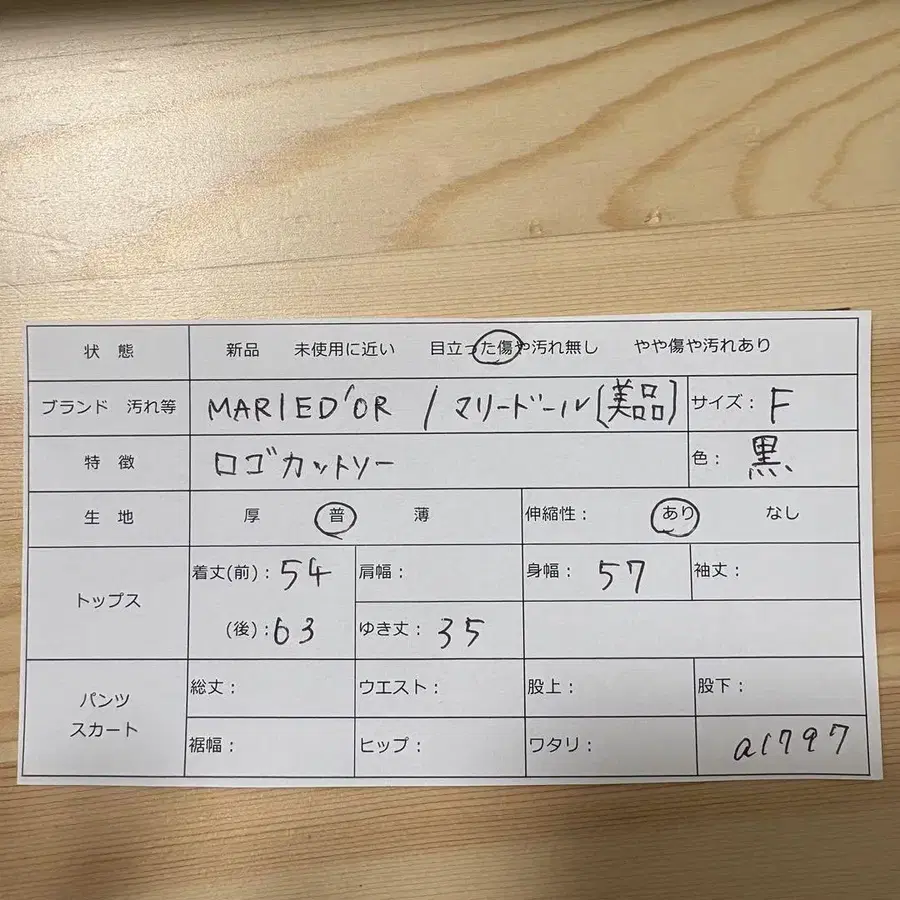 状 態 新品 未使用に近い 目立った傷や汚れ無し やや傷や汚れあり
ブランド 汚れ等 MARIED'OR / マリードール(美品) サイズ： F
特 徴 ロゴカットソー 色： 黒
生 地 厚 普 薄 伸縮性： あり なし
トップス 着丈(前)： 54 肩幅： 身幅： 57 袖丈：
(後)：63 ゆき丈： 35
パンツ スカート 総丈： ウエスト： 股上： 股下：
裾幅： ヒップ： ワタリ： a1797